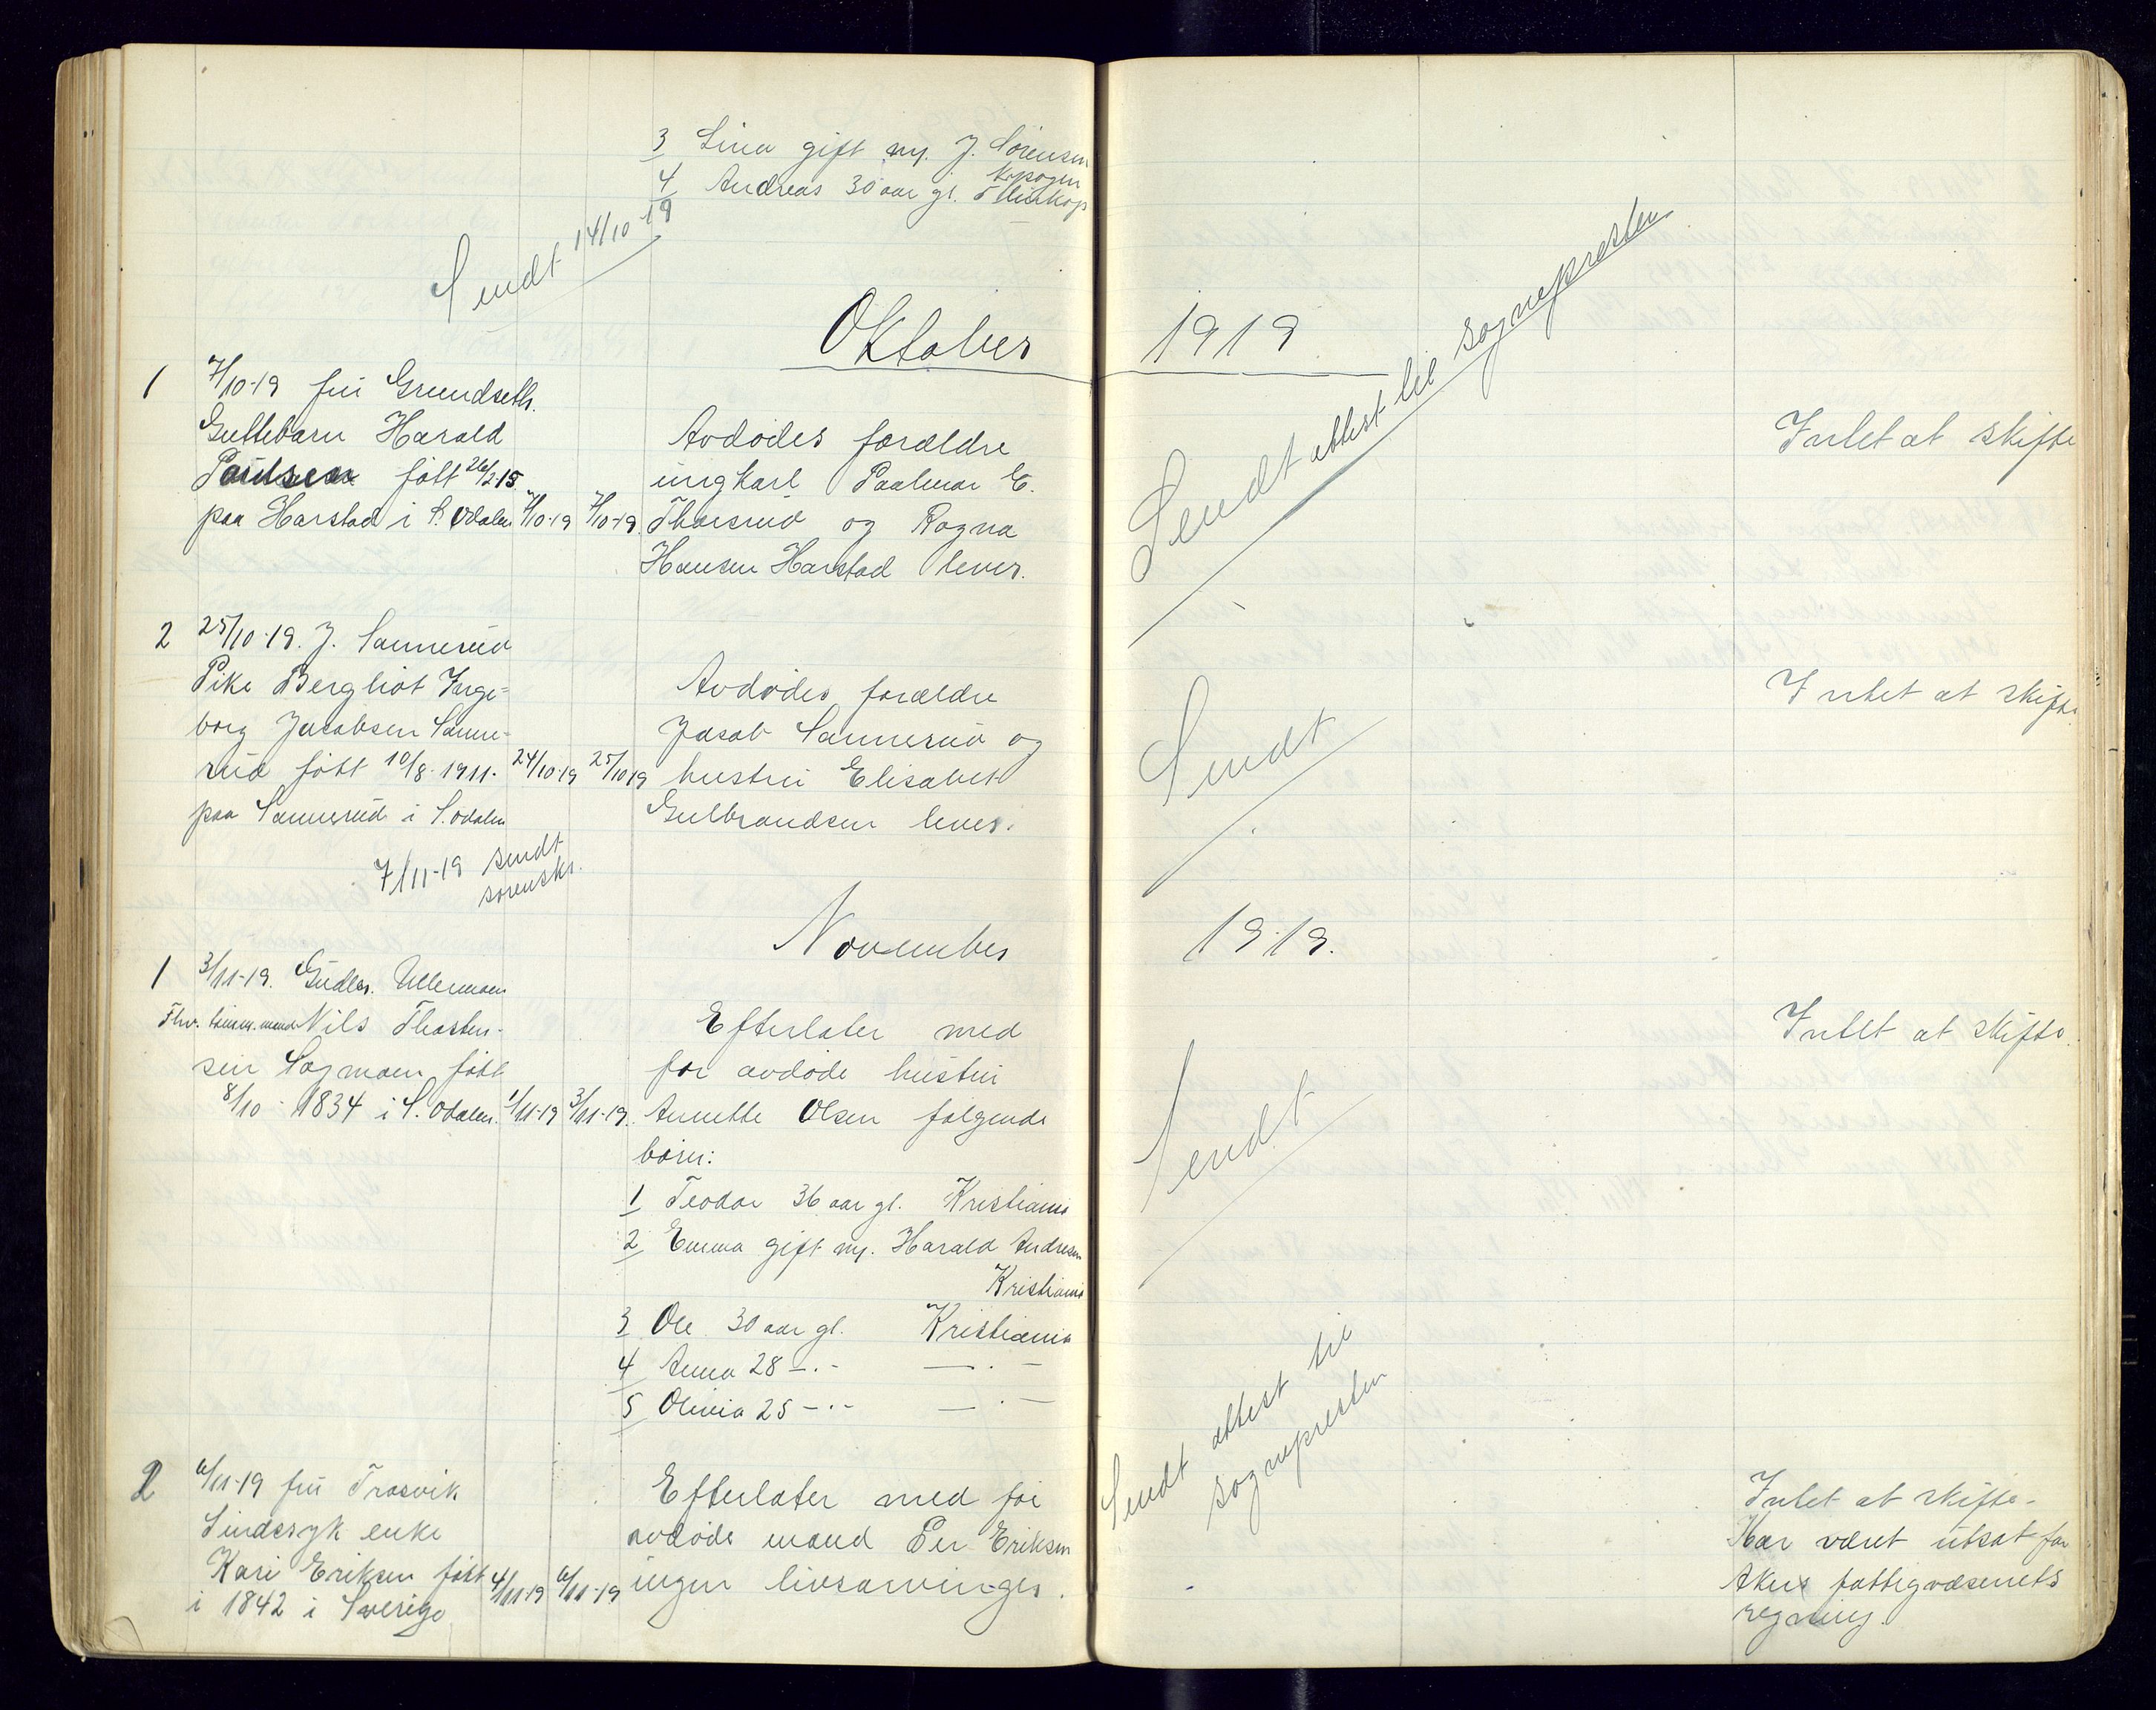 3 Lina gift m. J. Sörensen
4 Andreas 30 aar gl.
Sendt 14/10-19
Oktober 1919
1 7/10-19 fru Grundseth.
Guttebarn Harald
Paulsen født 26/2 15
paa Harstad i S. Odalen 7/10-19 7/10-19
Avdødes forældre
ungkarl Paalmar E.
Thorsrud og Ragna
Hansen Harstad lever.
Sendt attest til sognepresten
Intet at skifte
2 25/10-19. J. Sannerud
Pike Bergliot Inge-
borg Jacobsen Sanne-
rud født 10/8-1911. 24/10-19 25/10 19
paa Sannerud i S. Odalen
Avdødes forældre
Jacob Sannerud og
hustru Elisabet
Gulbrandsen lever.
Sendt
Intet at skifte
7/11-19 sendt
sorenskr.
November 1919.
1 3/11-19. Gudbr. Ullernmoen
Nils Thosten-
sen Sagmoen født
8/10-1834 i S. Odalen. 1/11-19 3/11-19.
Efterlater med
før avdøde hustru
Annette Olsen følgende
børn:
1 Teodor 36 aar gl. Kristiania
2 Emma gift m. Harald Andresen
Kristiania
3 Ole 30 aar gl. Kristiania
4 Anna 28 -.- -.-
5 Olivia 25 -.- -.-
Sendt
Intet at skifte.
2 6/11-19 fru Trosvik
Sindssyk enke
Kari Eriksen født 4/11-19 6/11-19
i 1842 i Sverige
Efterlater med før
avdøde mand Per Eriksen
ingen livsarvinger.
Sendt attest til
sognepresten
Intet at skifte.
Har været utsat for
Akers fattigvæsenets
regning.